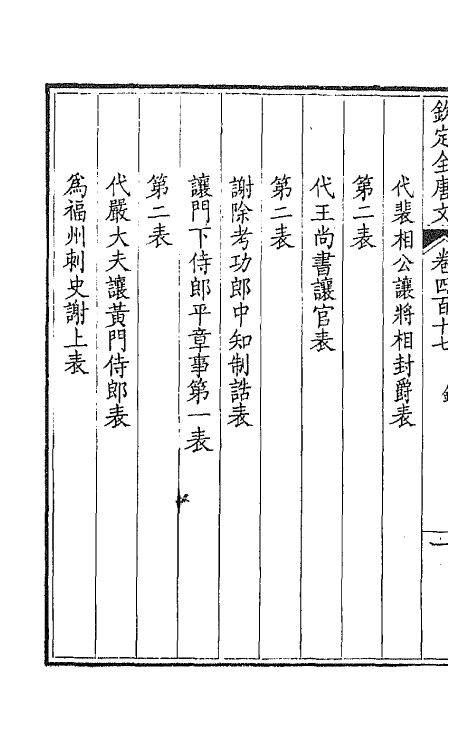 欽定全唐文
卷四百十七
一
代裴相公讓將相封爵表
第二表
代王尚書讓官表
第二表
謝除考功郎中知制誥表
讓門下侍郎平章事第一表
第二表
代嚴大夫讓黃門侍郎表
爲福州刺史謝上表